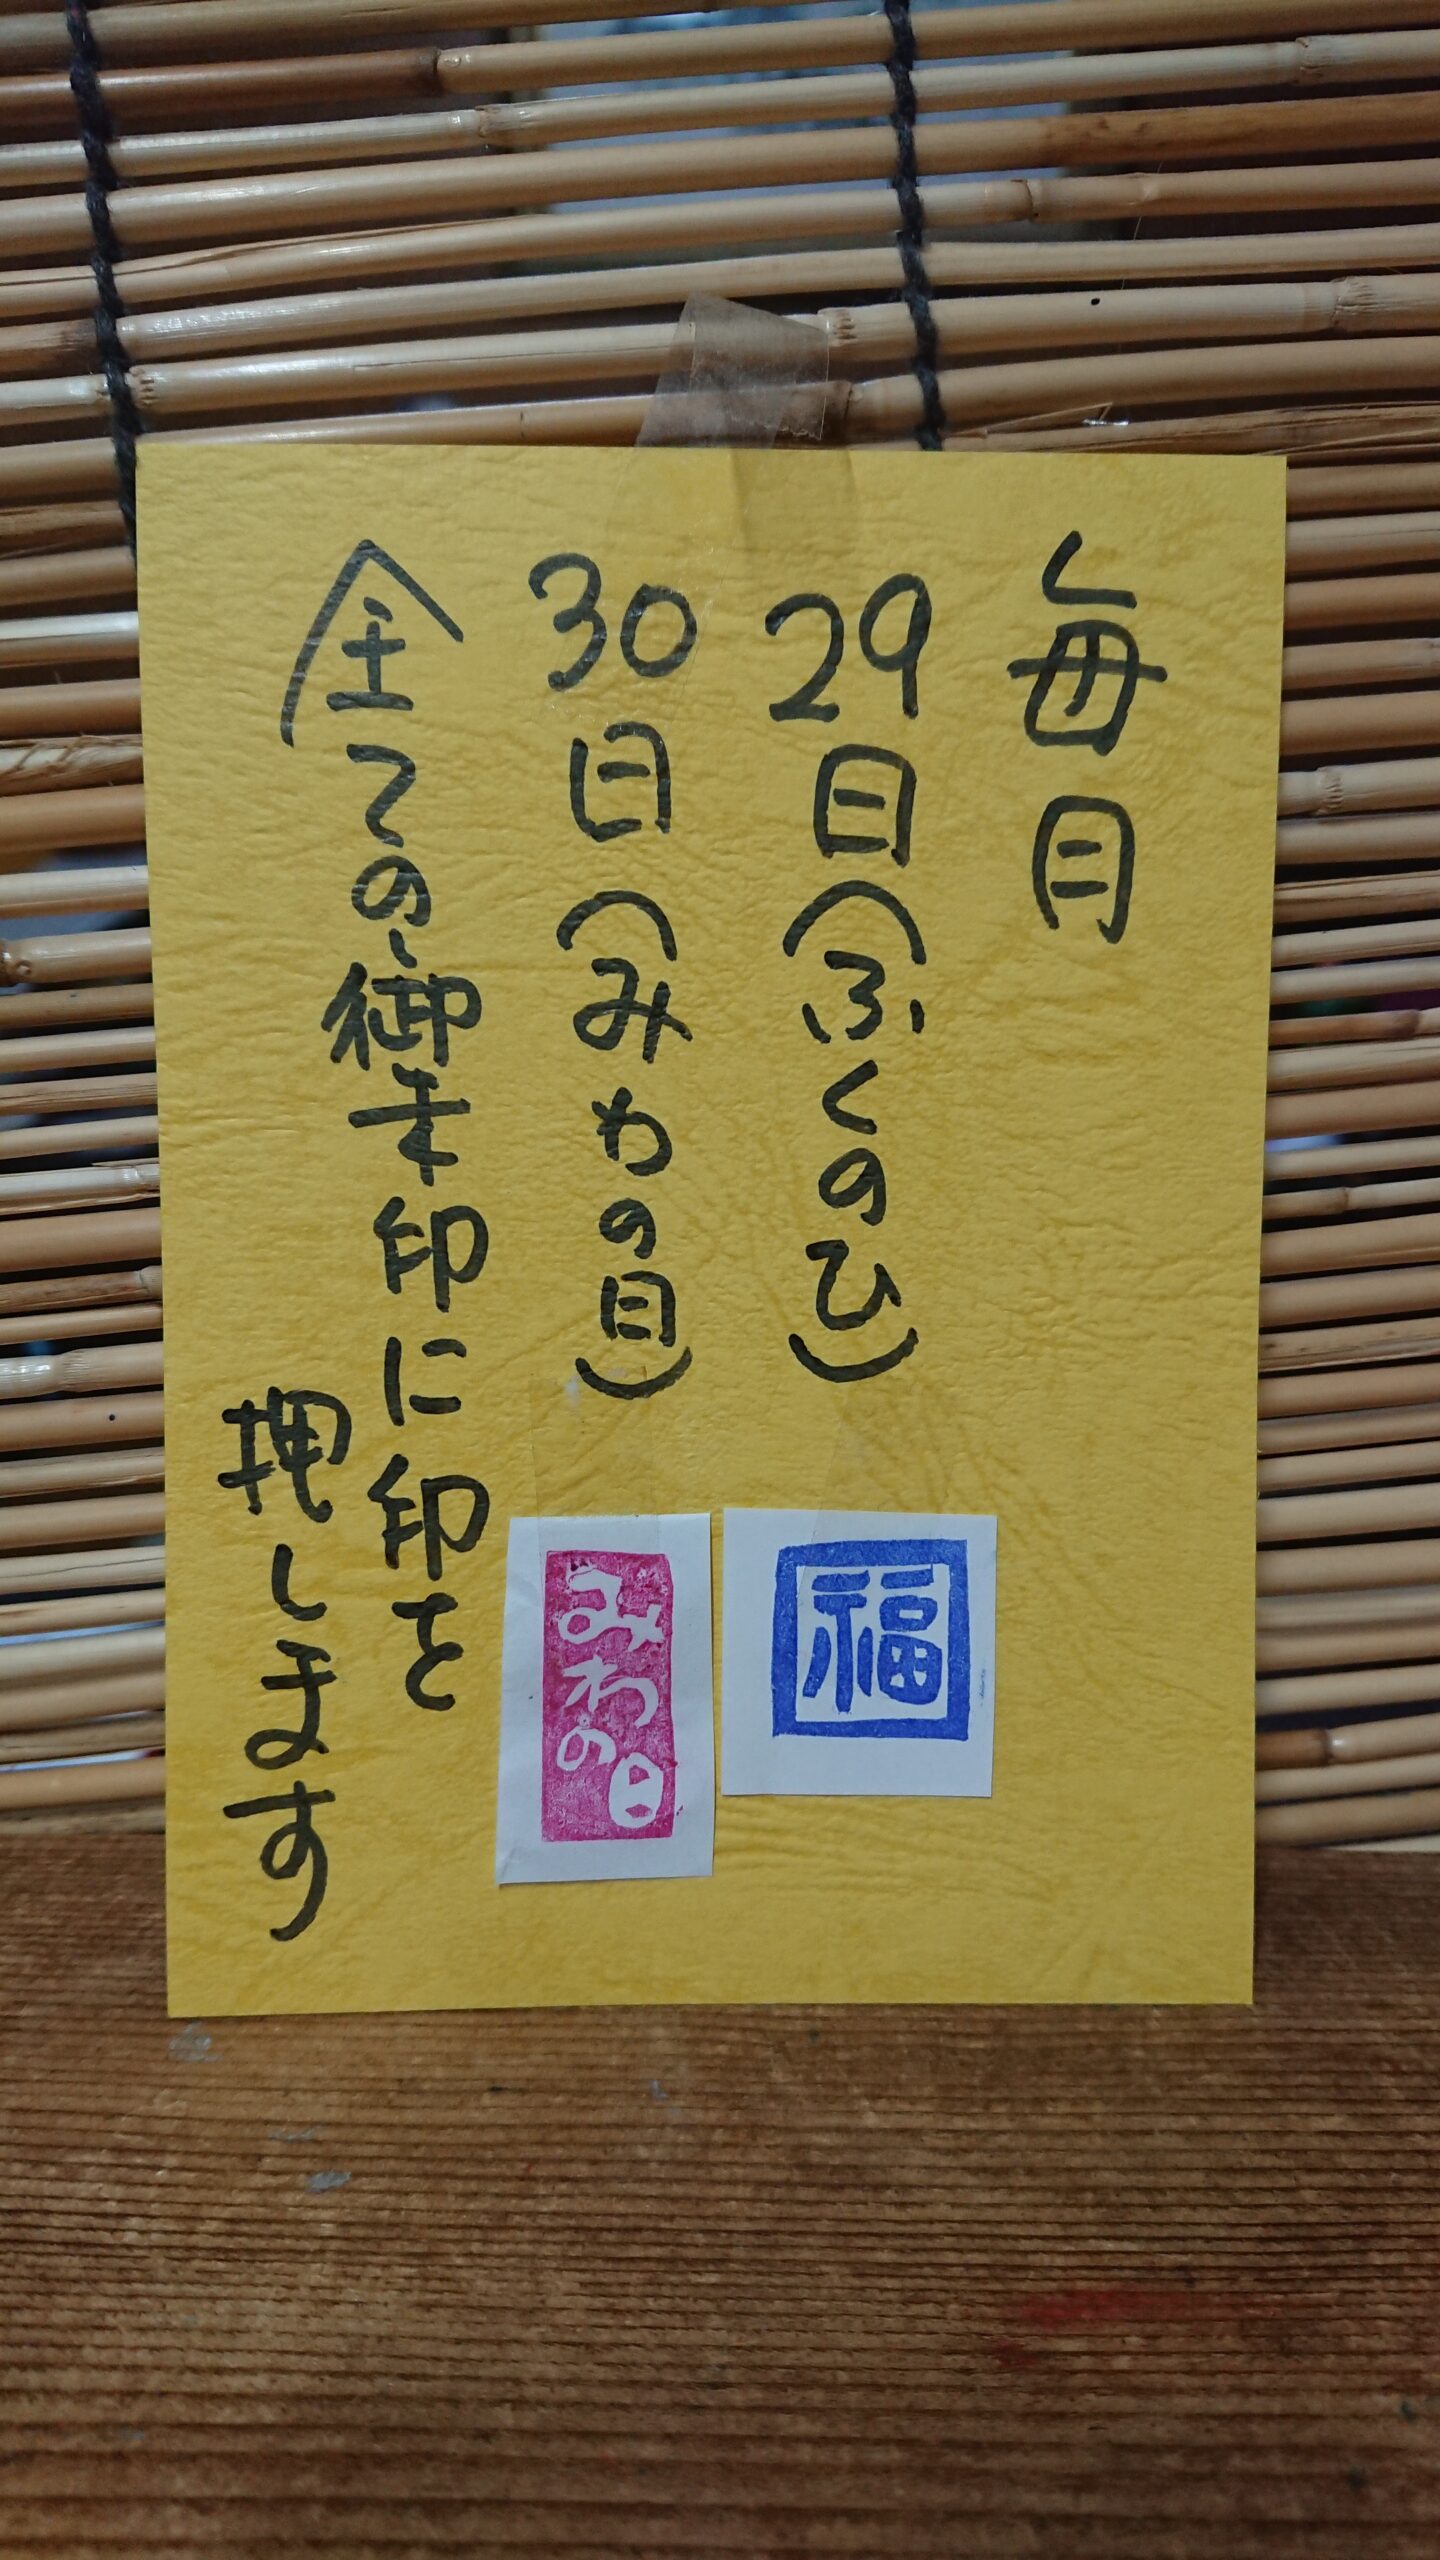 毎月
29日(ふくのひ)
福
30日(みわの日)
みわの日
全ての御朱印に印を
押します